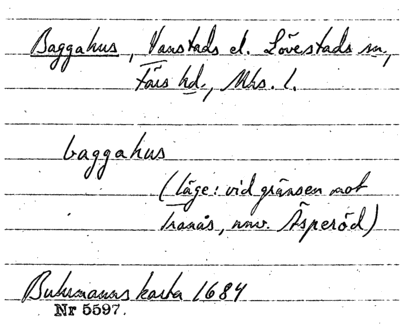 Baggahus, Vanstads el. Lövestads sn,
Färs hd., Mhs. l.
baggahus
(läge: vid gränsen mot
Tranås, nnv. Äsperöd)
Buhrmanns karta 1684
Nr 5597.